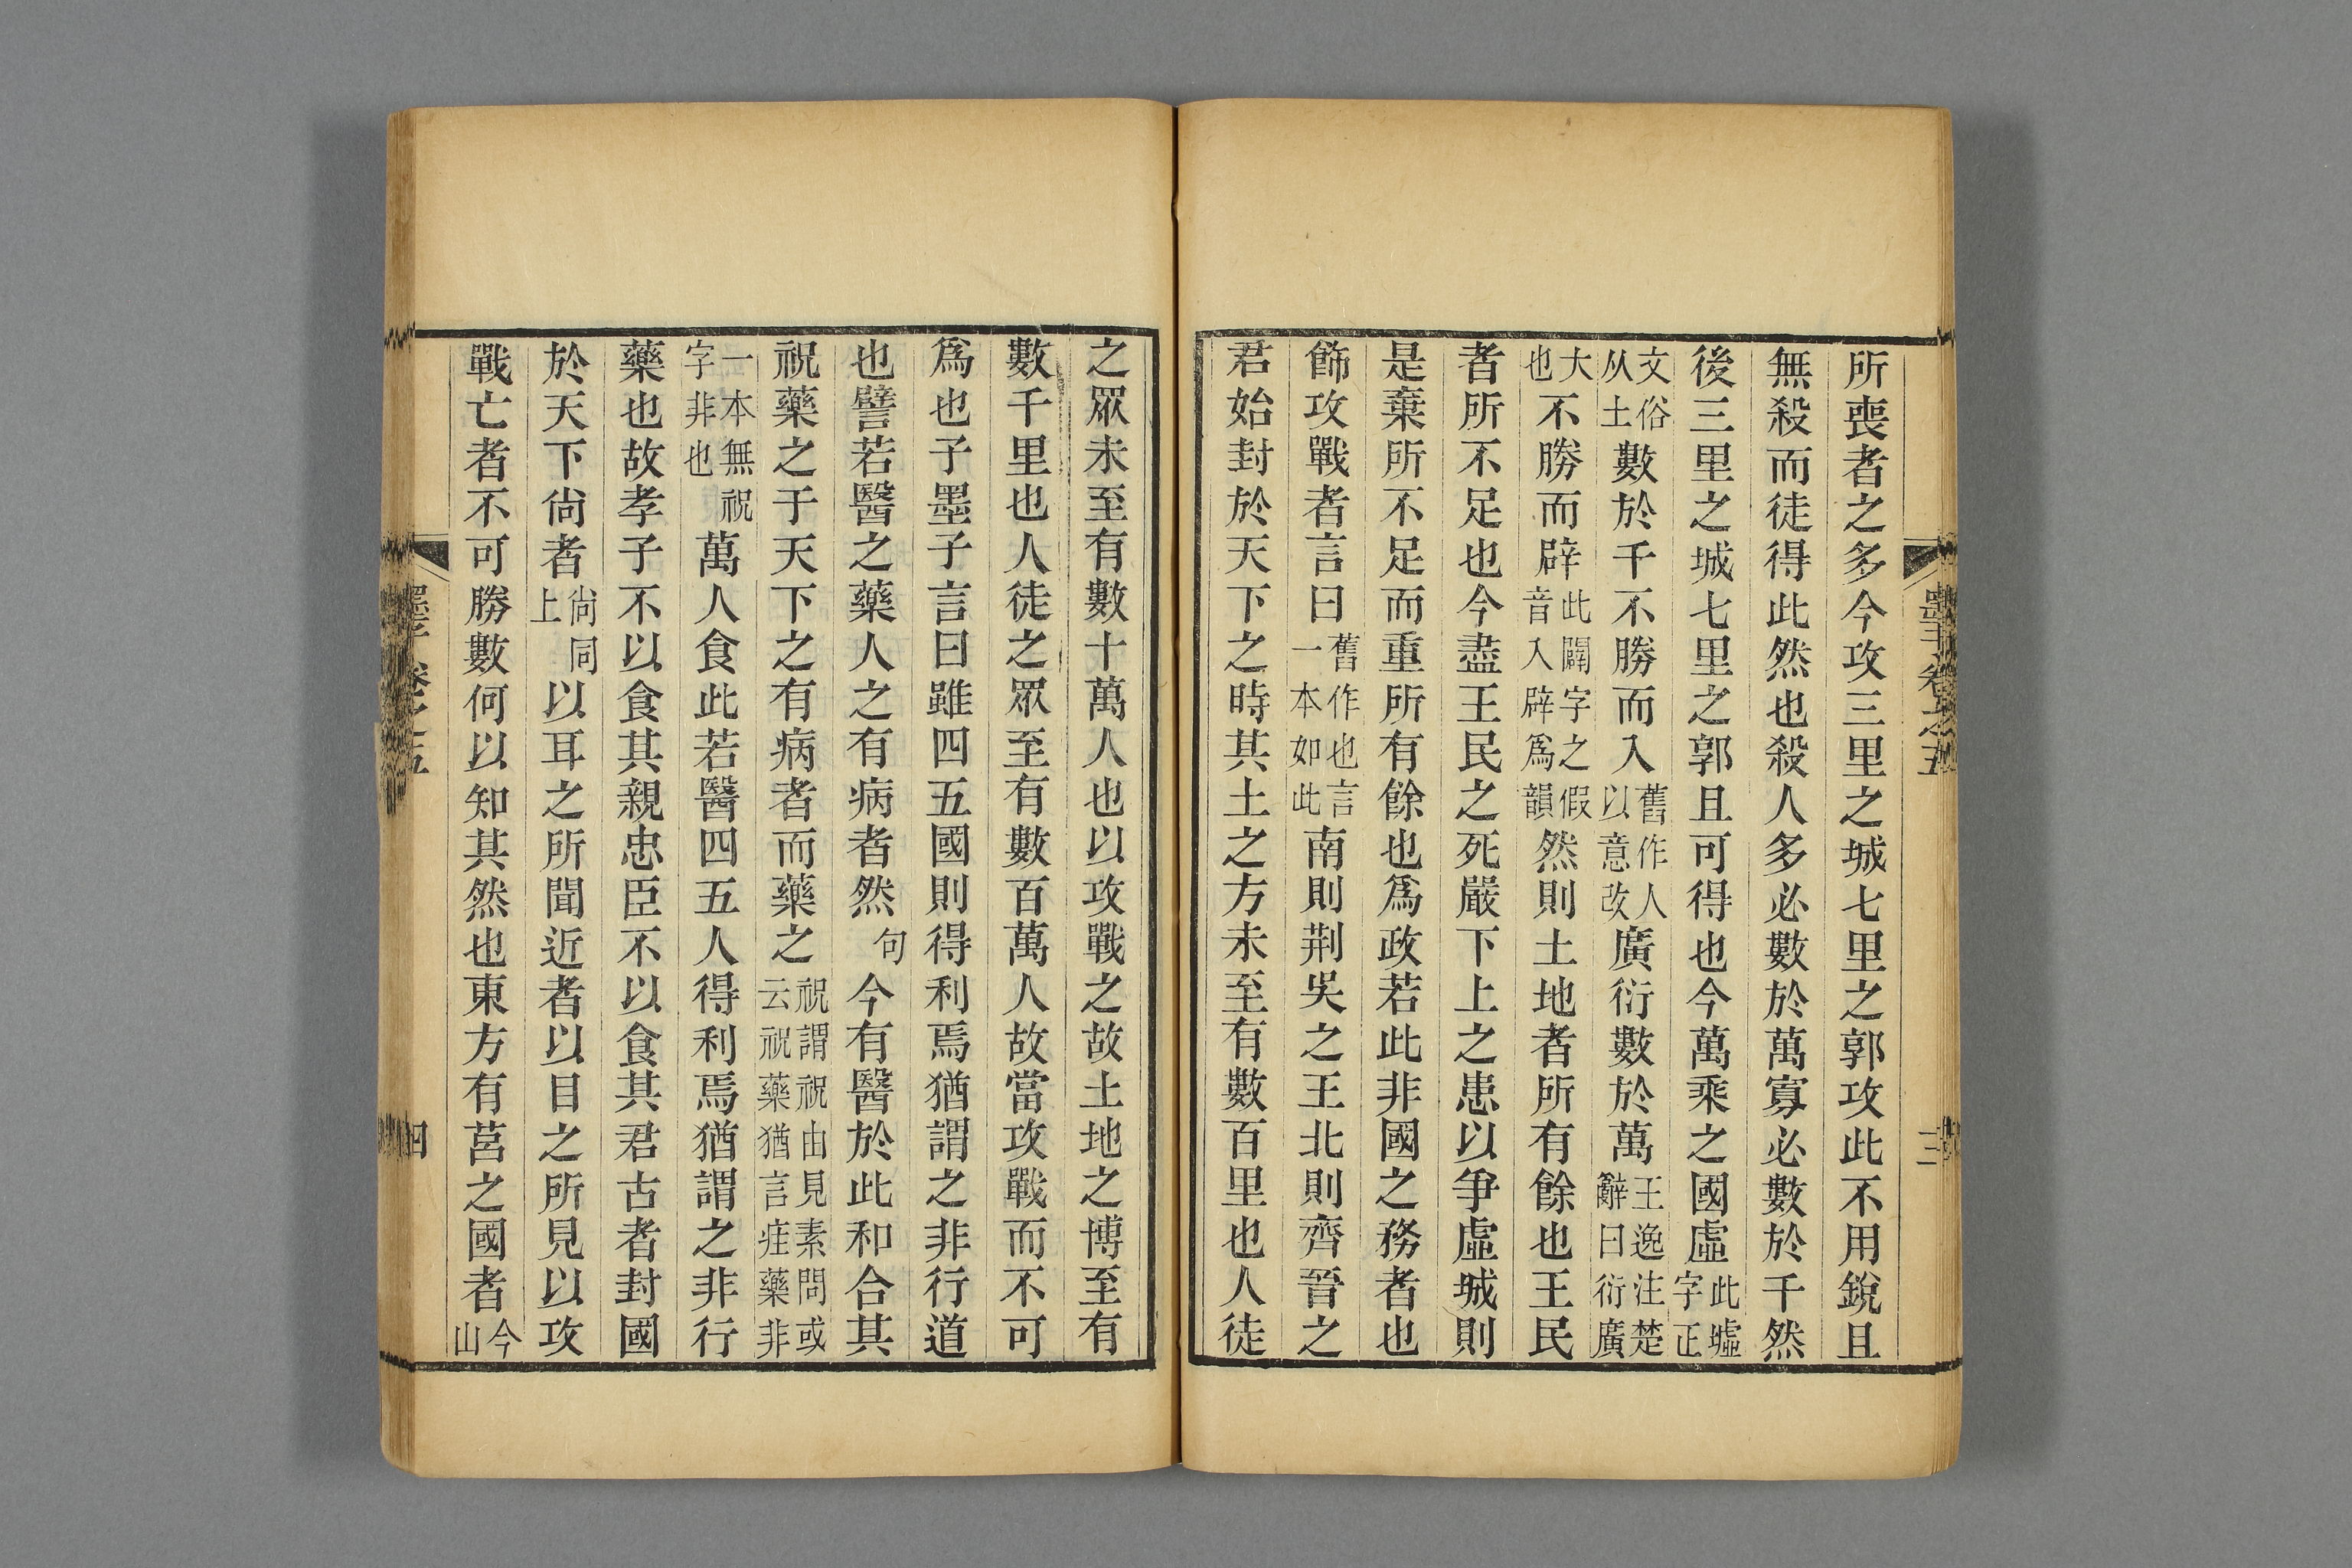 墨子卷之五
三
所喪者之多今攻三里之城七里之郭攻此不用銳且
無殺而徒得此然也殺人多必數於萬寡必數於千然
後三里之城七里之郭且可得也今萬乘之國虛此墟字正
文俗从土數於千不勝而入舊作人以意改廣衍數於萬王逸注楚辭曰衍廣
大也不勝而辟此闢字之假音入辟爲韻然則土地者所有餘也王民
者所不足也今盡王民之死嚴下上之患以爭虛城則
是棄所不足而重所有餘也爲政若此非國之務者也
飾攻戰者言曰舊作也言一本如此南則荆吳之王北則齊晉之
君始封於天下之時其土之方未至有數百里也人徒
之眾未至有數十萬人也以攻戰之故土地之博至有
數千里也人徒之眾至有數百萬人故當攻戰而不可
爲也子墨子言曰雖四五國則得利焉猶謂之非行道
也譬若醫之藥人之有病者然句今有醫於此和合其
祝藥之于天下之有病者而藥之祝謂祝由見素問或云祝藥猶言疰藥非
一本無祝字非也萬人食此若醫四五人得利焉猶謂之非行
藥也故孝子不以食其親忠臣不以食其君古者封國
於天下尙者尙同上以耳之所聞近者以目之所見以攻
戰亡者不可勝數何以知其然也東方有莒之國者今山
墨子卷之五
四